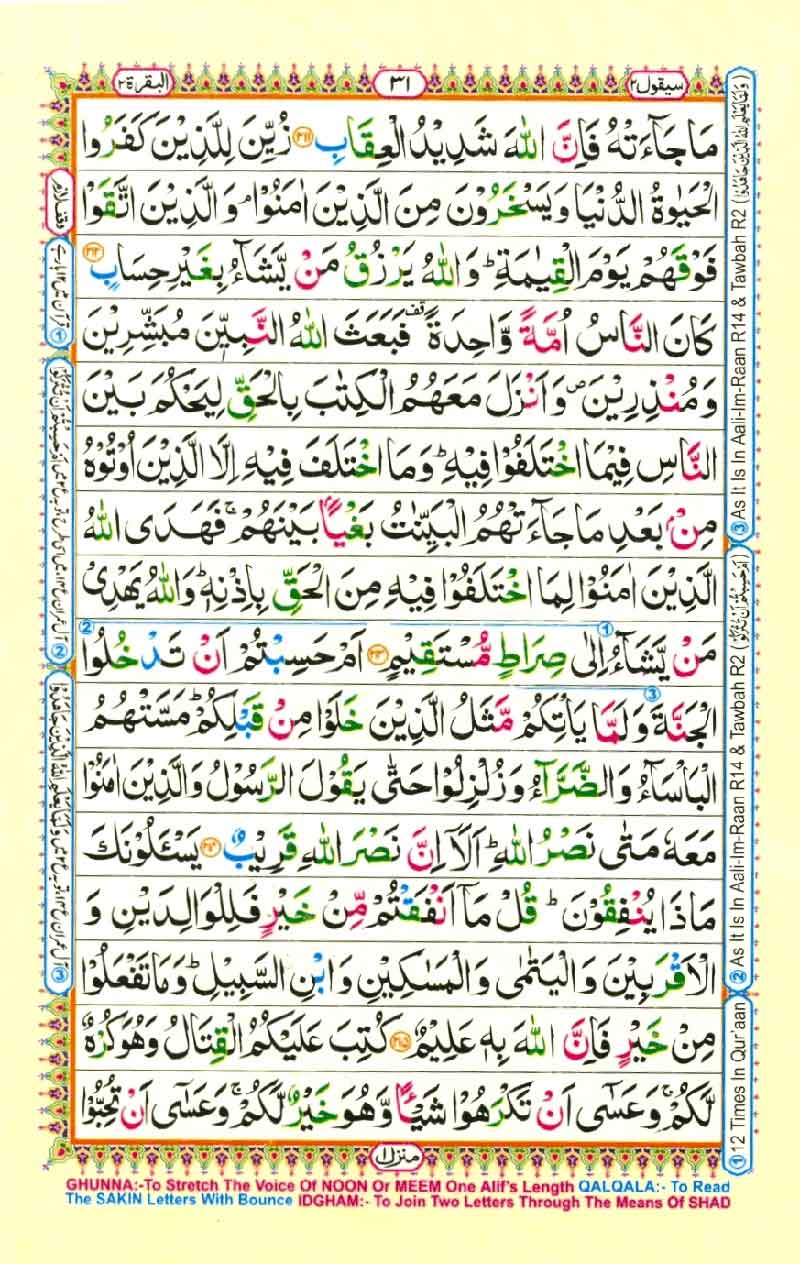 سيقول ٢
٣١
البقرة ٢
مَا جَآءَتْهُ فَاِنَّ اللّٰهَ شَدِيْدُ الْعِقَابِ ۝٢١١ زُيِّنَ لِلَّذِيْنَ كَفَرُوا
الْحَيٰوةُ الدُّنْيَا وَيَسْخَرُوْنَ مِنَ الَّذِيْنَ اٰمَنُوْا ۘ وَالَّذِيْنَ اتَّقَوْا
فَوْقَهُمْ يَوْمَ الْقِيٰمَةِ ؕ وَاللّٰهُ يَرْزُقُ مَنْ يَّشَآءُ بِغَيْرِ حِسَابٍ ۝٢١٢
كَانَ النَّاسُ اُمَّةً وَّاحِدَةً قف فَبَعَثَ اللّٰهُ النَّبِيّٖنَ مُبَشِّرِيْنَ
وَمُنْذِرِيْنَ ص وَاَنْزَلَ مَعَهُمُ الْكِتٰبَ بِالْحَقِّ لِيَحْكُمَ بَيْنَ
النَّاسِ فِيْمَا اخْتَلَفُوْا فِيْهِ ؕ وَمَا اخْتَلَفَ فِيْهِ اِلَّا الَّذِيْنَ اُوْتُوْهُ
مِنْۢ بَعْدِ مَا جَآءَتْهُمُ الْبَيِّنٰتُ بَغْيًاۢ بَيْنَهُمْ ۚ فَهَدَى اللّٰهُ
الَّذِيْنَ اٰمَنُوْا لِمَا اخْتَلَفُوْا فِيْهِ مِنَ الْحَقِّ بِاِذْنِهٖ ؕ وَاللّٰهُ يَهْدِيْ
مَنْ يَّشَآءُ اِلٰى صِرَاطٍ مُّسْتَقِيْمٍ ۝٢١٣ اَمْ حَسِبْتُمْ اَنْ تَدْخُلُوا
الْجَنَّةَ وَلَمَّا يَاْتِكُمْ مَّثَلُ الَّذِيْنَ خَلَوْا مِنْ قَبْلِكُمْ ؕ مَسَّتْهُمُ
الْبَاْسَآءُ وَالضَّرَّآءُ وَزُلْزِلُوْا حَتّٰى يَقُوْلَ الرَّسُوْلُ وَالَّذِيْنَ اٰمَنُوْا
مَعَهٗ مَتٰى نَصْرُ اللّٰهِ ؕ اَلَاۤ اِنَّ نَصْرَ اللّٰهِ قَرِيْبٌ ۝٢١٤ يَسْـَٔلُوْنَكَ
مَاذَا يُنْفِقُوْنَ ؕ قُلْ مَاۤ اَنْفَقْتُمْ مِّنْ خَيْرٍ فَلِلْوَالِدَيْنِ وَ
الْاَقْرَبِيْنَ وَالْيَتٰمٰى وَالْمَسٰكِيْنِ وَابْنِ السَّبِيْلِ ؕ وَمَا تَفْعَلُوْا
مِنْ خَيْرٍ فَاِنَّ اللّٰهَ بِهٖ عَلِيْمٌ ۝٢١٥ كُتِبَ عَلَيْكُمُ الْقِتَالُ وَهُوَ كُرْهٌ
لَّكُمْ ۚ وَعَسٰۤى اَنْ تَكْرَهُوْا شَيْـًٔا وَّهُوَ خَيْرٌ لَّكُمْ ۚ وَعَسٰۤى اَنْ تُحِبُّوْا
منزل ١
③ As It Is In Aali-Im-Raan R14 & Tawbah R2
② As It Is In Aali-Im-Raan R14 & Tawbah R2
① 12 Times In Qur'aan
GHUNNA:-To Stretch The Voice Of NOON Or MEEM One Alif's Length QALQALA:- To Read
The SAKIN Letters With Bounce IDGHAM:- To Join Two Letters Through The Means Of SHAD